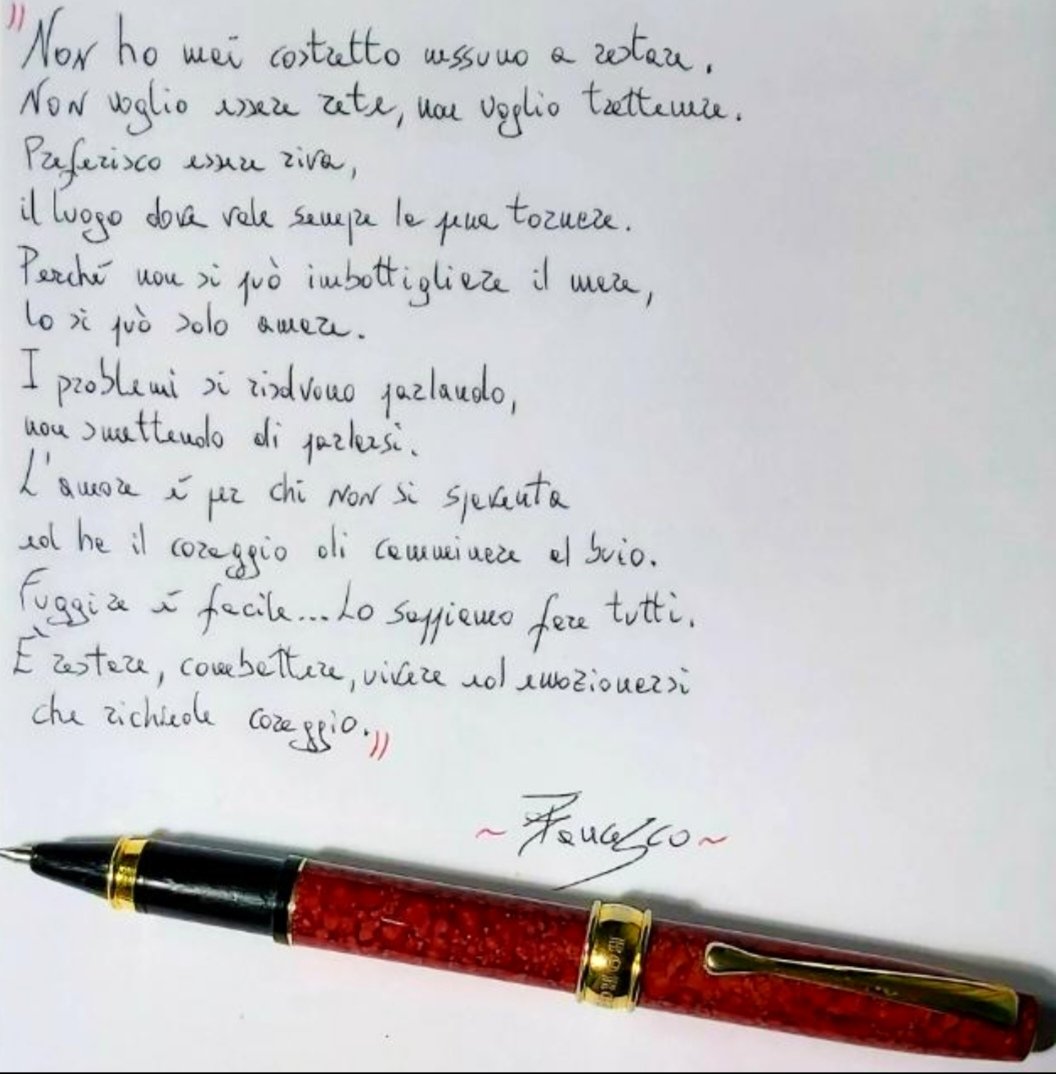 "Non ho mai costretto nessuno a restare.
Non voglio essere rete, non voglio trattenere.
Preferisco essere riva,
il luogo dove vale sempre la pena tornare.
Perché non si può imbottigliare il mare,
lo si può solo amare.
I problemi si risolvono parlando,
non smettendo di parlarsi.
L'amore è per chi non si spaventa
ed ha il coraggio di camminare al buio.
Fuggire è facile... Lo sappiamo fare tutti.
È restare, combattere, vivere ed emozionarsi
che richiede coraggio."
~ Francesco ~